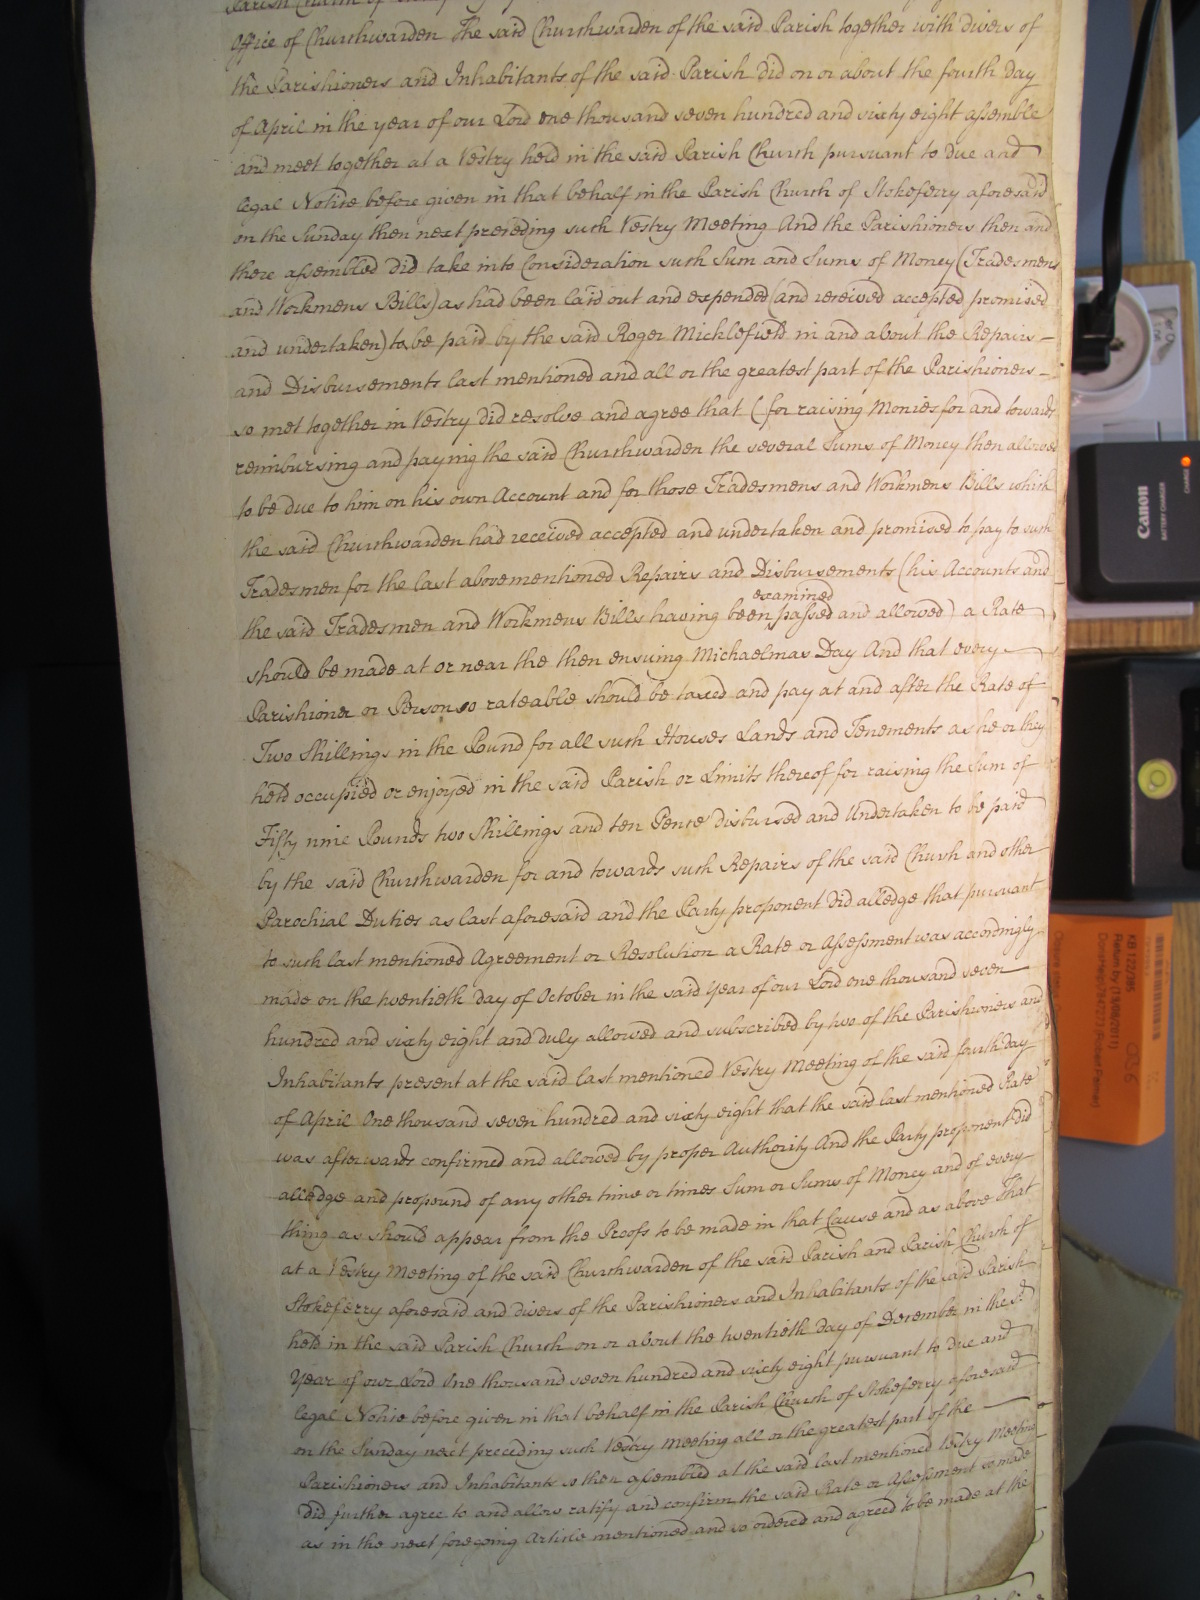 Office of Churchwarden The said Churchwarden of the said Parish together with divers of
the Parishioners and Inhabitants of the said Parish did on or about the fourth day
of April in the year of our Lord one thousand seven hundred and sixty eight assemble
and meet together at a Vestry held in the said Parish Church pursuant to due and
legal Notice before given in that behalf in the Parish Church of Stokeferry aforesaid
on the Sunday then next preceding such Vestry Meeting And the Parishioners then and
there assembled did take into Consideration such Sum and Sums of Money (Tradesmens
and Workmens Bills) as had been laid out and expended (and received accepted promised
and undertaken) to be paid by the said Roger Micklefield in and about the Repairs
and Disbursements last mentioned and all or the greatest part of the Parishioners
so met together in Vestry did resolve and agree that (for raising Monies for and towards
reimbursing and paying the said Churchwarden the several Sums of Money then allowed
to be due to him on his own Account and for those Tradesmens and Workmens Bills which
the said Churchwarden had received accepted and undertaken and promised to pay to such
Tradesmen for the last abovementioned Repairs and Disbursements (his Accounts and
examined
the said Tradesmen and Workmens Bills having been passed and allowed) a Rate
should be made at or near the then ensuing Michaelmas Day And that every
Parishioner or Person so rateable should be taxed and pay at and after the Rate of
Two Shillings in the Pound for all such Houses Lands and Tenements as he or they
held occupied or enjoyed in the said Parish or Limits thereof for raising the Sum of
Fifty nine Pounds two Shillings and ten Pence disbursed and Undertaken to be paid
by the said Churchwarden for and towards such Repairs of the said Church and other
Parochial Duties as last aforesaid and the Party proponent did alledge that pursuant
to such last mentioned Agreement or Resolution a Rate or Assessment was accordingly
made on the twentieth day of October in the said Year of our Lord one thousand seven
hundred and sixty eight and duly allowed and subscribed by two of the Parishioners and
Inhabitants present at the said last mentioned Vestry Meeting of the said fourth day
of April One thousand seven hundred and sixty eight that the said last mentioned Rate
was afterwards confirmed and allowed by proper Authority And the Party proponent did
alledge and propound of any other time or times Sum or Sums of Money and of every
thing as should appear from the Proofs to be made in that Cause and as above That
at a Vestry Meeting of the said Churchwarden of the said Parish and Parish Church of
Stokeferry aforesaid and divers of the Parishioners and Inhabitants of the said Parish
held in the said Parish Church on or about the twentieth day of December in the sd
Year of our Lord One thousand seven hundred and sixty eight pursuant to due and
legal Notice before given in that behalf in the Parish Church of Stokeferry aforesaid
on the Sunday next preceding such Vestry Meeting all or the greatest part of the
Parishioners and Inhabitants so then assembled at the said last mentioned Vestry Meeting
did further agree to and allow ratify and confirm the said Rate or Assessment so made
as in the next foregoing Article mentioned and so ordered and agreed to be made at the
Canon
BATTERY CHARGER
CHARGE
KB 122/385
Return by (18/08/2011)